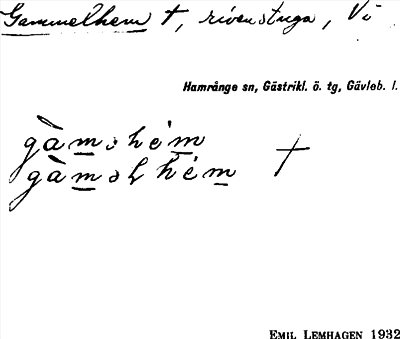 Gammelhem †, riven stuga, Vi
Hamrånge sn, Gästrikl. ö. tg, Gävleb. l.
gàmɘhém
gàmɘlhém †
EMIL LEMHAGEN 1932